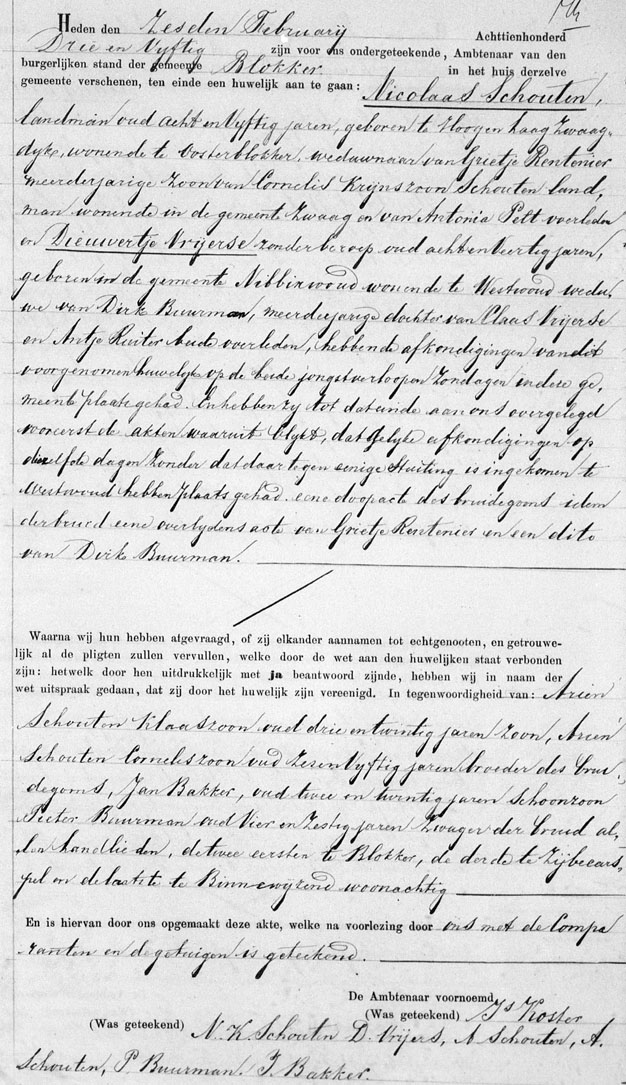 Heden den Zesden Februarij Achttienhonderd
Drie en Vyftig zijn voor ons ondergeteekende, Ambtenaar van den
burgerlijken stand der gemeente Blokker in het huis derzelve
gemeente verschenen, ten einde een huwelijk aan te gaan: Nicolaas Schouten,
landman oud acht en Vyftig jaren, geboren te Hoogen haag Zwaag-
dyk, wonende te Oosterblokker, weduwnaar van Grietje Rentenier
meerderjarige Zoon van Cornelis Krijnszoon Schouten land,
man wonende in de gemeente Zwaag en van Antonia Pelt overleden
en Dieuwertje Vrijerse zonder beroep oud acht en Veertig jaren,
geboren in de gemeente Nibbixwoud wonende te Westwoud wedu,
we van Dirk Buurman, meerderjarige dochter van Claas Vrijerse
en Antje Ruiter beide overleden, hebbende afkondigingen van dit
voorgenomen huwelyk op de beide jongstverloopen Zondagen in deze ge,
meente plaats gehad. En hebben zy tot dat einde aan ons overgelegd
vooreerst de akten waaruit blykt, dat gelyke afkondigingen op
dezelfde dagen Zonder dat daar tegen eenige Stuiting is ingekomen te
Westwoud hebben plaats gehad. eene doopacte des bruidegoms idem
der bruid eene overlydens acte van Grietje Rentenier en een dito
van Dirk Buurman.
Waarna wij hun hebben afgevraagd, of zij elkander aannamen tot echtgenooten, en getrouwe-
lijk al de pligten zullen vervullen, welke door de wet aan den huwelijken staat verbonden
zijn: hetwelk door hen uitdrukkelijk met ja beantwoord zijnde, hebben wij in naam der
wet uitspraak gedaan, dat zij door het huwelijk zijn vereenigd. In tegenwoordigheid van: Arien
Schouten Klaaszoon oud drie en twintig jaren Zoon, Arien
Schouten Corneliszoon oud Zes en Vyftig jaren broeder des brui-
degoms, Jan Bakker, oud twee en twintig jaren Schoonzoon
Pieter Buurman oud Vier en Zestig jaren Zwager der bruid al,
len landlieden, de twee eersten te Blokker, de derde te Zijbecars-
pel en de laatste te Binnewyzend woonachtig
En is hiervan door ons opgemaakt deze akte, welke na voorlezing door ons met de Compa
ranten en de getuigen is geteekend.
De Ambtenaar voornoemd
(Was geteekend) Js Koster
(Was geteekend) N. K. Schouten D. Vrijers, A Schouten, A.
Schouten, P. Buurman. J. Bakker.